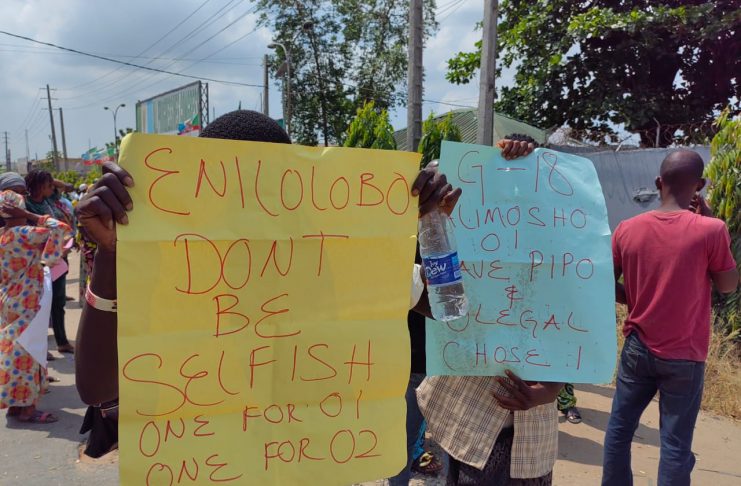 ENILOLOBO
DONT
BE
SELFISH
ONE FOR 01
ONE FOR 02
G-18
LIMOSHO
01
AVE PIPO
&
LEGAL
CHOSE :1
Dew